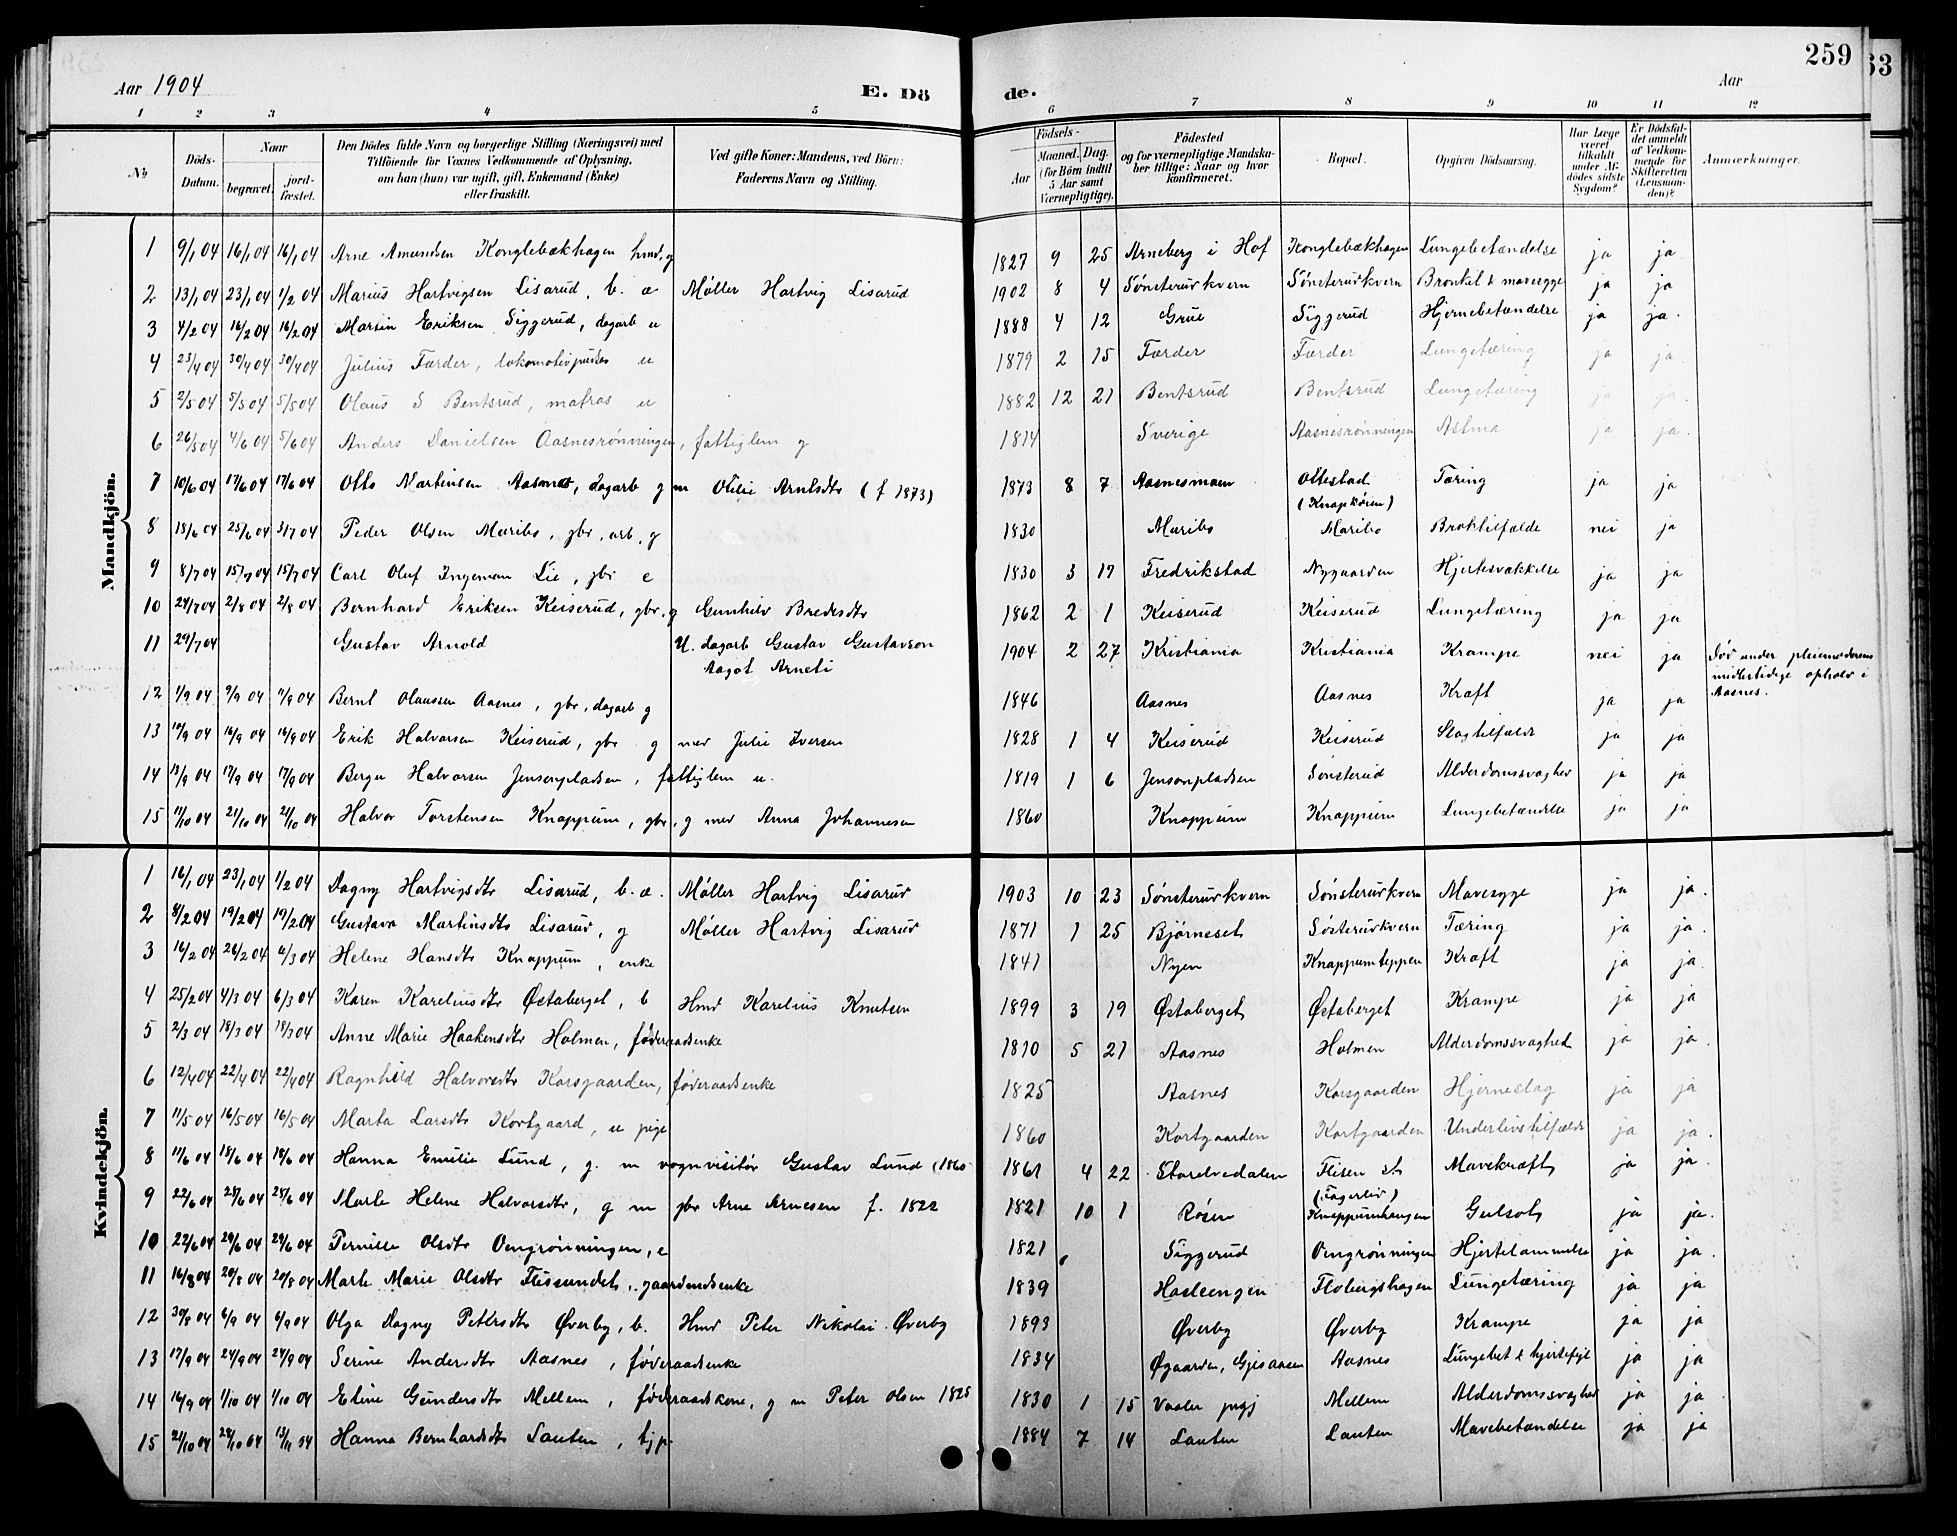 259
63
Aar 1904
E. Dö
de.
Aar
1 2 3 4 5 6 7 8 9 10 11 12
No
Döds-Datum.
Naar
begravet.
jord-fæstet.
Den Dödes fulde Navn og borgerlige Stilling (Næringsvei) med
Tilföiende for Voxnes Vedkommende af Oplysning,
om han (hun) var ugift, gift, Enkemand (Enke)
eller fraskilt.
Ved gifte Koner: Mandens, ved Börn:
Faderens Navn og Stilling.
Födsels-
Aar
Maaned. Dag.
(for Börn indtil
5 Aar samt
Værnepligtige).
Födested
og for værnepligtige Mandska-
ber tillige: Naar og hvor
konfirmeret.
Bopæl.
Opgiven Dödsaarsag.
Har Læge
været
tilkaldt
under Af-
dödes sidste
Sygdom?
Er Dödsfal-
det anmeldt
af Vedkom-
mende for
Skifteretten
(Lensman-
den)?
Anmærkninger.
Mandkjön.
1 9/1 04 16/1 04 16/1 04 Arne Amundsen Konglebækhagen hmd, g 1827 9 25 Arneberg i Hof Konglebækhagen Lungebetændelse ja ja
2 13/1 04 23/1 04 1/2 04 Marius Hartvigsen Lisarud, b. æ Møller Hartvig Lisarud 1902 8 4 Sønsterudkvern Sønsterudkvern Bronkit & mavesyge ja ja
3 4/2 04 16/2 04 16/2 04 Martin Eriksen Siggerud, dagarb u 1888 4 12 Grue Siggerud Hjernebetændelse ja ja.
4 23/4 04 30/4 04 30/4 04 Julius Færder, lokomotivpudser u 1879 2 15 Færder Færder Lungetæring ja ja.
5 2/5 04 5/5 04 5/5 04 Olaus S Bentsrud, matros u 1882 12 21 Bentsrud Bentsrud Lungetæring ja ja.
6 26/5 04 4/6 04 5/6 04 Anders Danielsen Aasnesrønningen, fattiglem g 1814 Sverige Aasnesrønningen Astma ja ja.
7 10/6 04 17/6 04 17/6 04 Otto Martinsen Aasnes, dagarb g m Otilie Arntsdtr (f 1873) 1873 8 7 Aasnesmoen Ottestad Tæring ja ja
8 18/6 04 25/6 04 3/7 04 Peder Olsen Maribo, gbr, arb, g 1830 Maribo Maribo Broktilfælde nei ja
9 8/7 04 15/7 04 15/7 04 Carl Oluf Ingeman Lie, gbr e 1830 3 17 Fredrikstad Nygaarden Hjertesvækkelse ja ja
10 24/7 04 2/8 04 2/8 04 Bernhard Eriksen Keiserud, gbr, g Gunhild Bredesdtr 1862 2 1 Keiserud Keiserud Lungetæring ja ja
11 29/7 04 Gustav Arnold U. dagarb Gustav Gustavson
Aagot Arneti 1904 2 27 Kristiania Kristiania Krampe nei ja Død under pleiemoderens
midlertidige ophold i
Aasnes.
12 1/9 04 9/9 04 11/9 04 Bernt Olaussen Aasnes, gbr, dagarb g 1846 Aasnes Aasnes Kræft ja ja
13 10/9 04 16/9 04 16/9 04 Erik Halvorsen Keiserud, gbr g med Julie Iversen 1828 1 4 Keiserud Keiserud Slagtilfælde ja ja
14 13/9 04 17/9 04 17/9 04 Berger Halvorsen Jensenpladsen, fattiglem u. 1819 1 6 Jensenpladsen Sønsterud Alderdomssvaghed ja ja
15 11/10 04 21/10 04 21/10 04 Halvor Torstensen Knappum, gbr, g med Anna Johannesen 1860 Knappum Knappum Lungebetændelse ja ja
Kvindekjön.
1 16/1 04 23/1 04 1/2 04 Dagny Hartvigsdtr Lisarud, b. æ. Møller Hartvig Lisarud 1903 10 23 Sønsterudkvern Sønsterudkvern Mavesyge ja ja.
2 8/2 04 19/2 04 19/2 04 Gustava Martinsdtr Lisarud, g Møller Hartvig Lisarud 1871 1 25 Bjørneset Søsterudkvern Tæring ja ja.
3 16/2 04 26/2 04 6/3 04 Helene Hansdtr Knappum, enke 1841 Nyen Knappumteppen Kræft ja ja.
4 25/2 04 4/3 04 6/3 04 Karen Kareliusdtr Østaberget, b Hmd Karelius Knutsen 1899 3 19 Østaberget Østaberget Krampe ja ja
5 2/3 04 18/3 04 18/3 04 Anne Marie Haakensdtr Holmen, føderaadsenke 1810 5 21 Aasnes Holmen Alderdomssvaghed ja ja
6 12/4 04 22/4 04 22/4 04 Ragnhild Halvorsdtr Korsgaarden, føderaadsenke 1825 Aasnes Korsgaarden Hjerneslag ja ja
7 11/5 04 16/5 04 16/5 04 Marta Larsdtr Kortgaard, u pige 1860 Kortgaarden Kortgaarden Underlivstilfælde ja ja.
8 11/6 04 18/6 04 18/6 04 Hanna Emilie Lund, g. m vognvisitør Gustav Lund (1860 1861 4 22 Storelvedalen Flisen st
(Fagerliv) Mavekræft ja ja.
9 22/6 04 28/6 04 28/6 04 Marte Helene Halvorsdtr, g m gbr Arne Arnesen f. 1822 1821 10 1 Røsen Knappumhaugen Gulsot ja ja.
10 22/6 04 29/6 04 29/6 04 Pernille Olsdtr Oengrønningen, e 1821 Siggerud Oengrønningen Hjertelammelse ja ja.
11 16/8 04 20/8 04 20/8 04 Marte Marie Olsdtr Flisundet, gaardmdsenke 1839 Hasleengen Flobergshagen Lungetæring ja ja
12 30/8 04 6/9 04 6/9 04 Olga Dagny Petersdtr Øverby, b. Hmd Peter Nikolai Øverby 1893 Øverby Øverby Krampe ja ja
13 17/9 04 24/9 04 24/9 04 Serine Andersdtr Aasnes, føderaadsenke 1834 Øgaarden, Gjesaasen Aasnes Lungebet & hjertefejl ja ja
14 16/9 04 1/10 04 1/10 04 Eline Gundersdtr Mellem, føderaadskone, g m Peter Olsen 1828 1830 1 15 Vaaler prgj Mellem Alderdomssvaghed ja ja
15 21/10 04 28/10 04 13/11 04 Hanna Bernhardsdtr Lauten, tjp 1884 7 14 Lauten Lauten Mavebetændelse ja ja